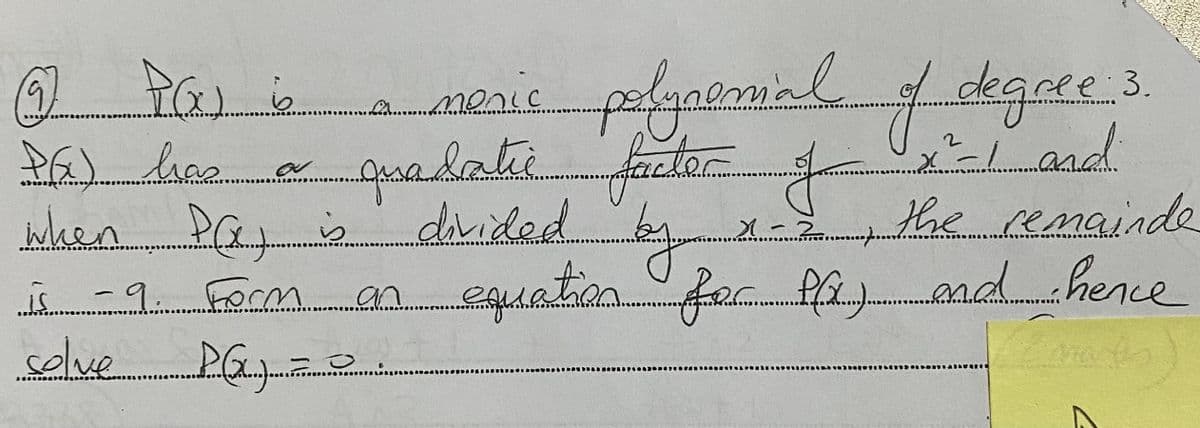 9) P(x) is a monic polynomial of degree 3.
P(x) has a quadratic factor of x²-1 and
when P(x) is divided by x-2, the remainde
is -9. Form an equation for P(x) and hence
solve P(x) = 0.